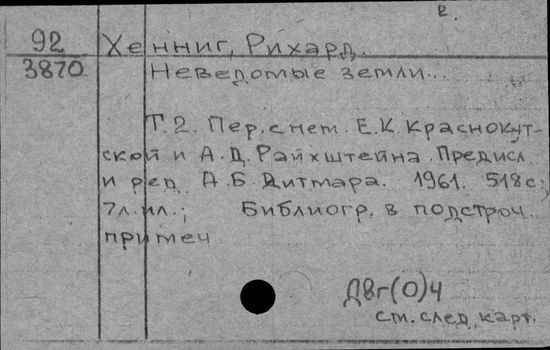 2.
92 Хенниг, Рихард.
3870 Неведомые земли...
Т. 2. Пер. с нем. Е.К. Краснокут-
ской и А.Д. Райхштейна. Предисл.
и ред. А.Б. Дитмара. 1961. 518 с.;
7 л. ил.; Библиогр. в подстроч.
примеч
Д8г(0)4
см. след. карт.